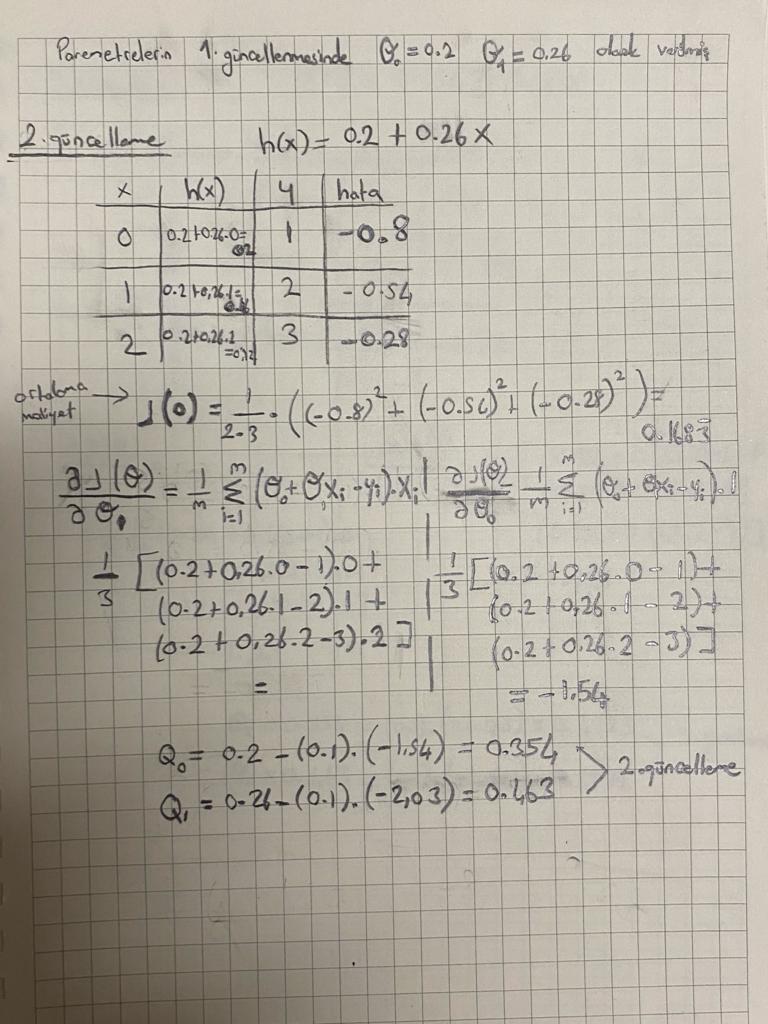 Parametrelerin 1. güncellenmesinde θ₀ = 0.2 θ₁ = 0.26 olarak verilmiş
2. güncelleme h(x) = 0.2 + 0.26 x
x h(x) y hata
0 0.2+0.26.0= 0.2 1 -0.8
1 0.2+0,26.1= 2 -0.54
2 0.2+0,26.2 =0,72 3 -0.28
ortalama maliyet → J(0) = 1/2.3 . ((-0.8)² + (-0.54)² + (-0.28)²) = 0.1683
∂J(θ)/∂θ₁ = 1/m Σ_{i=1}^{m} (θ₀ + θ₁xᵢ - yᵢ).xᵢ | ∂J(θ)/∂θ₀ 1/m Σ_{i=1}^{m} (θ₀ + θxᵢ - yᵢ).1
1/3 [(0.2+0,26.0-1).0+ | 1/3 [(0.2+0,26.0-1)+
(0.2+0,26.1-2).1 + | (0.2+0,26.1-2)+
(0.2+0,26.2-3).2] | (0.2+0.26.2-3)]
= = -1.54
Q₀ = 0.2 - (0.1).(-1,54) = 0.354
Q₁ = 0.26 - (0.1).(-2,03) = 0.463 > 2.güncelleme